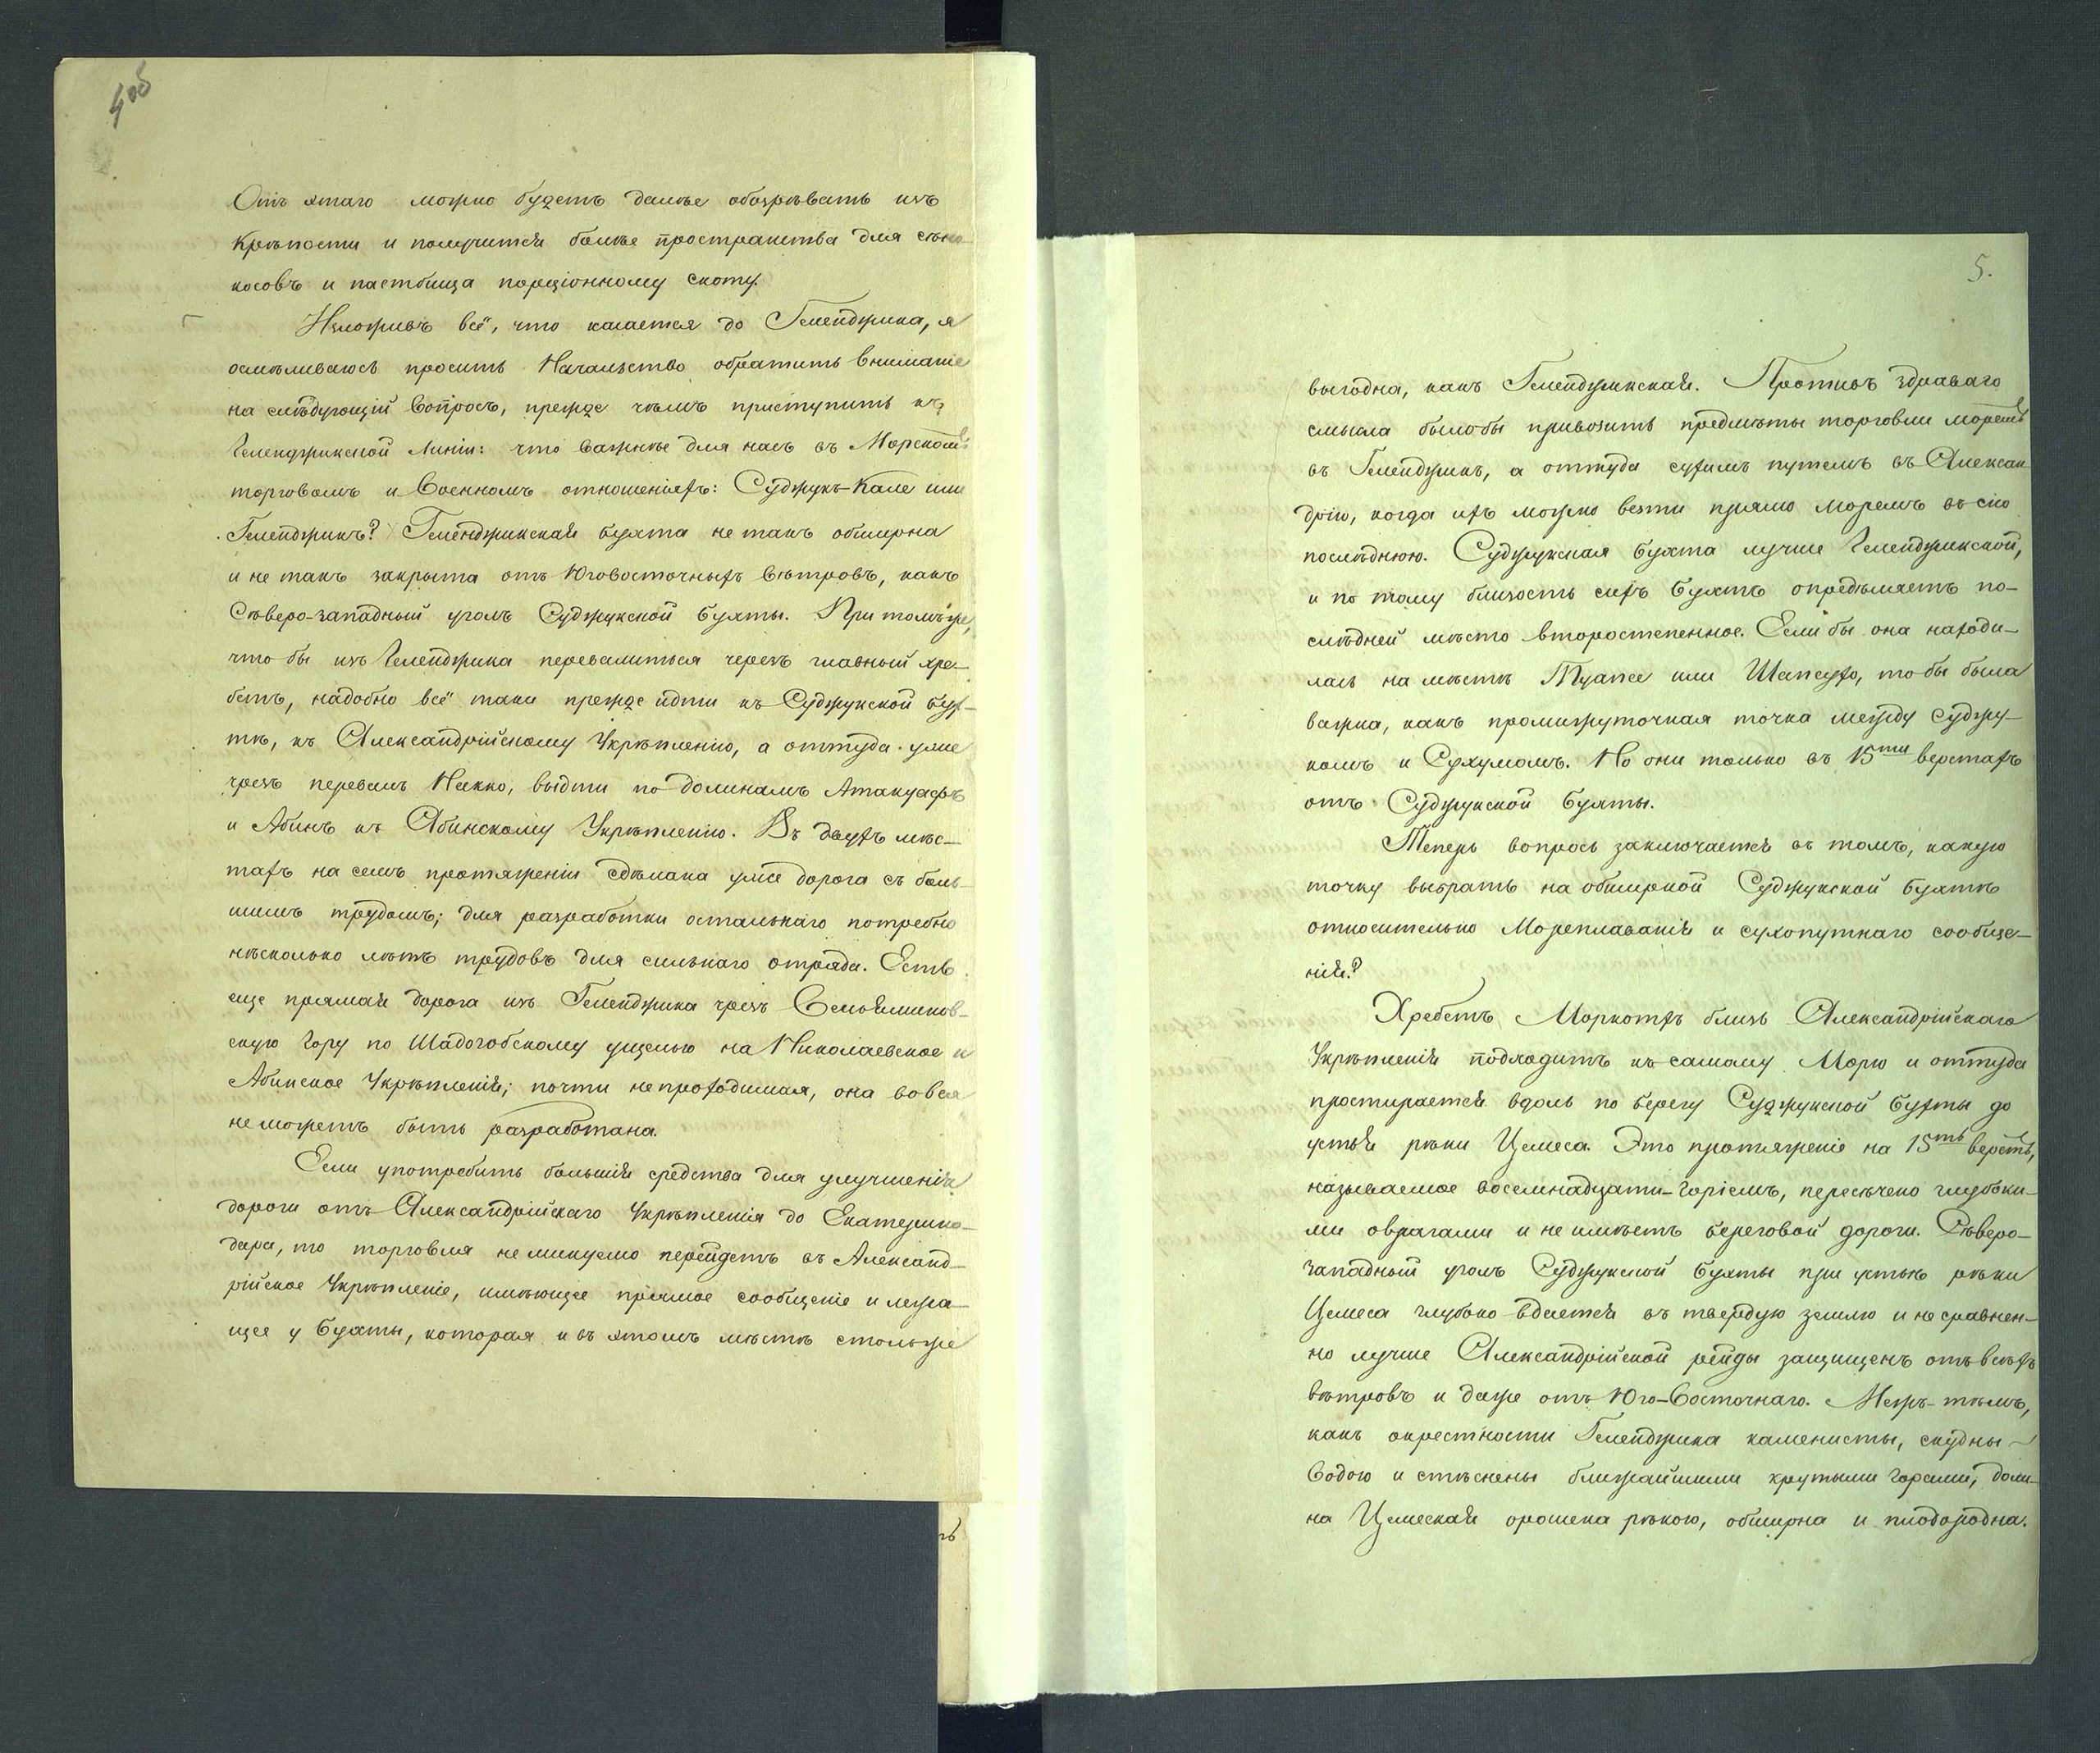 4об
Отъ этаго можно будетъ далѣе обозрѣвать изъ
Крѣпости и получится болѣе пространства для сѣно-
косовъ и пастбища порціонному скоту.
Изложивъ всё, что касается до Геленджика, я
осмѣливаюсь просить Начальство обратить вниманіе
на слѣдующій вопросъ, прежде чѣмъ приступить къ
Геленджикской Линіи: что важнѣе для насъ въ Морскомъ
торговомъ и Военномъ отношеніяхъ: Суджукъ-Кале или
Геленджикъ? Геленджикская бухта не такъ обширна
и не такъ закрыта отъ Юговосточныхъ вѣтровъ, какъ
Сѣверо-западный уголъ Суджукской бухты. При томъ же,
что бы изъ Геленджика перевалиться черезъ главный хре-
бетъ, надобно всё таки прежде идти къ Суджукской бух-
тѣ, къ Александрійскому Укрѣпленію, а оттуда уже
чрезъ перевалъ Нако, выдти по долинамъ Атакуафъ
и Абинъ къ Абинскому Укрѣпленію. Въ двухъ мѣс-
тахъ на семъ протяженіи сдѣлана уже дорога съ боль-
шимъ трудомъ; для разработки остальнаго потребно
нѣсколько лѣтъ трудовъ для сильнаго отряда. Есть
еще прямая дорога изъ Геленджика чрезъ
скую Гору по Шадогобскому ущелью на Николаевское и
Абинское Укрѣпленія; почти непроходимая, она вовсе
не можетъ быть разработана.
Если употребить большія средства для улучшенія
дороги отъ Александрійскаго Укрѣпленія до Екатерино-
дара, то торговля неминуемо перейдетъ въ Александ-
рійское Укрѣпленіе, имѣющее прямое сообщеніе и лежа-
щее у Бухты, которая и въ этомъ мѣстѣ столь же
5.
выгодна, какъ Геленджикская. Противъ здраваго
смысла было бы привозить предмѣты торговли моремъ
въ Геленджикъ, а оттуда сухимъ путемъ въ Алексан
дрію, когда ихъ можно везти прямо моремъ въ сію
послѣднюю. Суджукская бухта лучше Геленджикской,
и по тому близость сихъ бухтъ опредѣляетъ по-
слѣдней мѣсто второстепенное. Если бы она находи-
лась на мѣстѣ Туапсе или Шапсухо, то бы была
важна, какъ промижуточная точка между Суджу-
комъ и Сухумомъ. Но они только въ 15ти верстахъ
отъ Суджукской бухты.
Теперь вопросъ заключается въ томъ, какую
точку выбрать на обширной Суджукской бухтѣ
относительно Мореплаванія и сухопутнаго сообще-
нія?
Хребетъ Маркотхъ близь Александрійскаго
Укрѣпленія подходитъ къ самому Морю и оттуда
простирается вдоль по берегу Суджукской бухты до
устья рѣки Цемеса. Это протяженіе на 15ть верстъ,
называемое восемнадцати-горіемъ, пересѣчено глубоки-
ми оврагами и не имѣетъ береговой дороги. Сѣверо-
западный уголъ Суджукской бухты при устьѣ рѣки
Цемеса глубоко вдается въ твердую землю и несравнен-
но лучше Александрійской рейды защищенъ отъ всѣхъ
вѣтровъ и даже отъ Юго-Восточнаго. Межъ-тѣмъ,
какъ окрестности Геленджика каменисты, скудны
водою и стѣснены ближайшими крутыми горами, доли-
на Цемеская орошена рѣкою, обширна и плодородна.